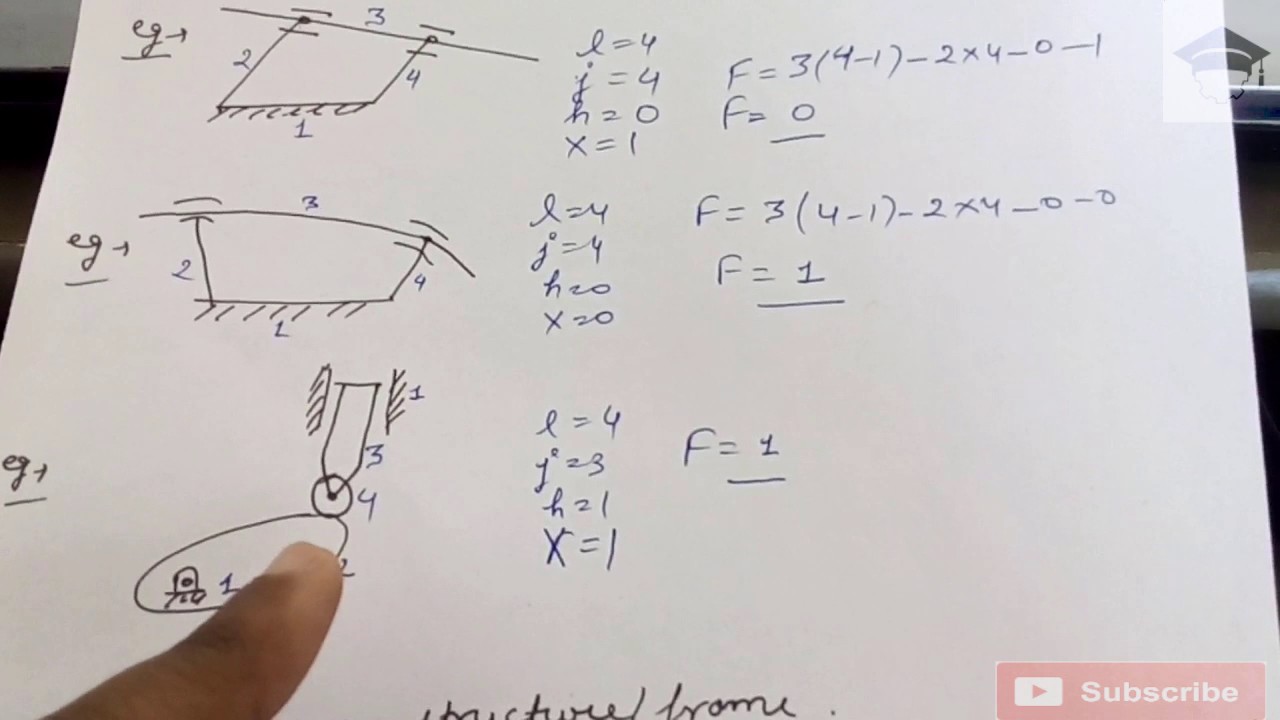 eg→
3
2
4
1
l = 4
j = 4
h = 0
x = 1
F = 3(4-1) - 2×4 - 0 - 1
F = 0
eg→
3
2
4
1
l = 4
j = 4
h = 0
x = 0
F = 3(4-1) - 2×4 - 0 - 0
F = 1
eg→
1
3
4
1
2
l = 4
j = 3
h = 1
x = 1
F = 1
structure/frame.
Subscribe